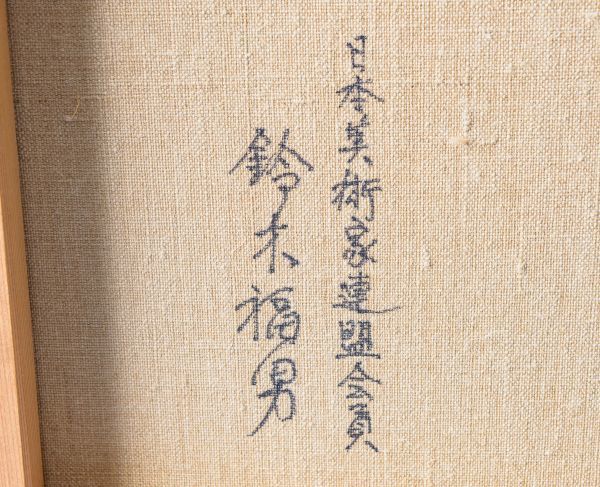 日本美術家連盟会員
鈴木福男